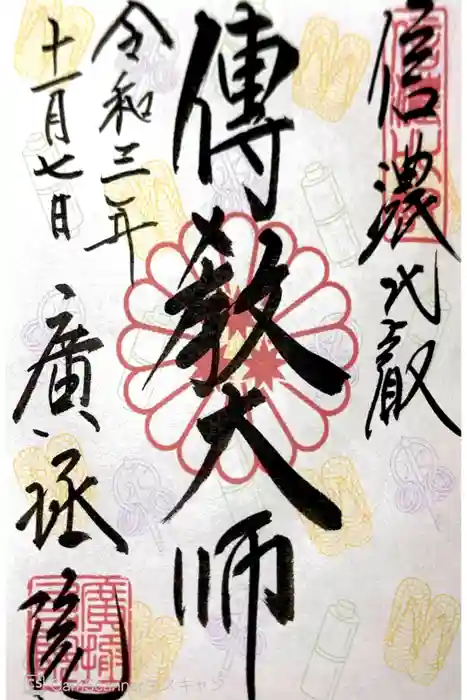 信濃比叡
傳教大師
令和三年
十一月七日
廣拯院